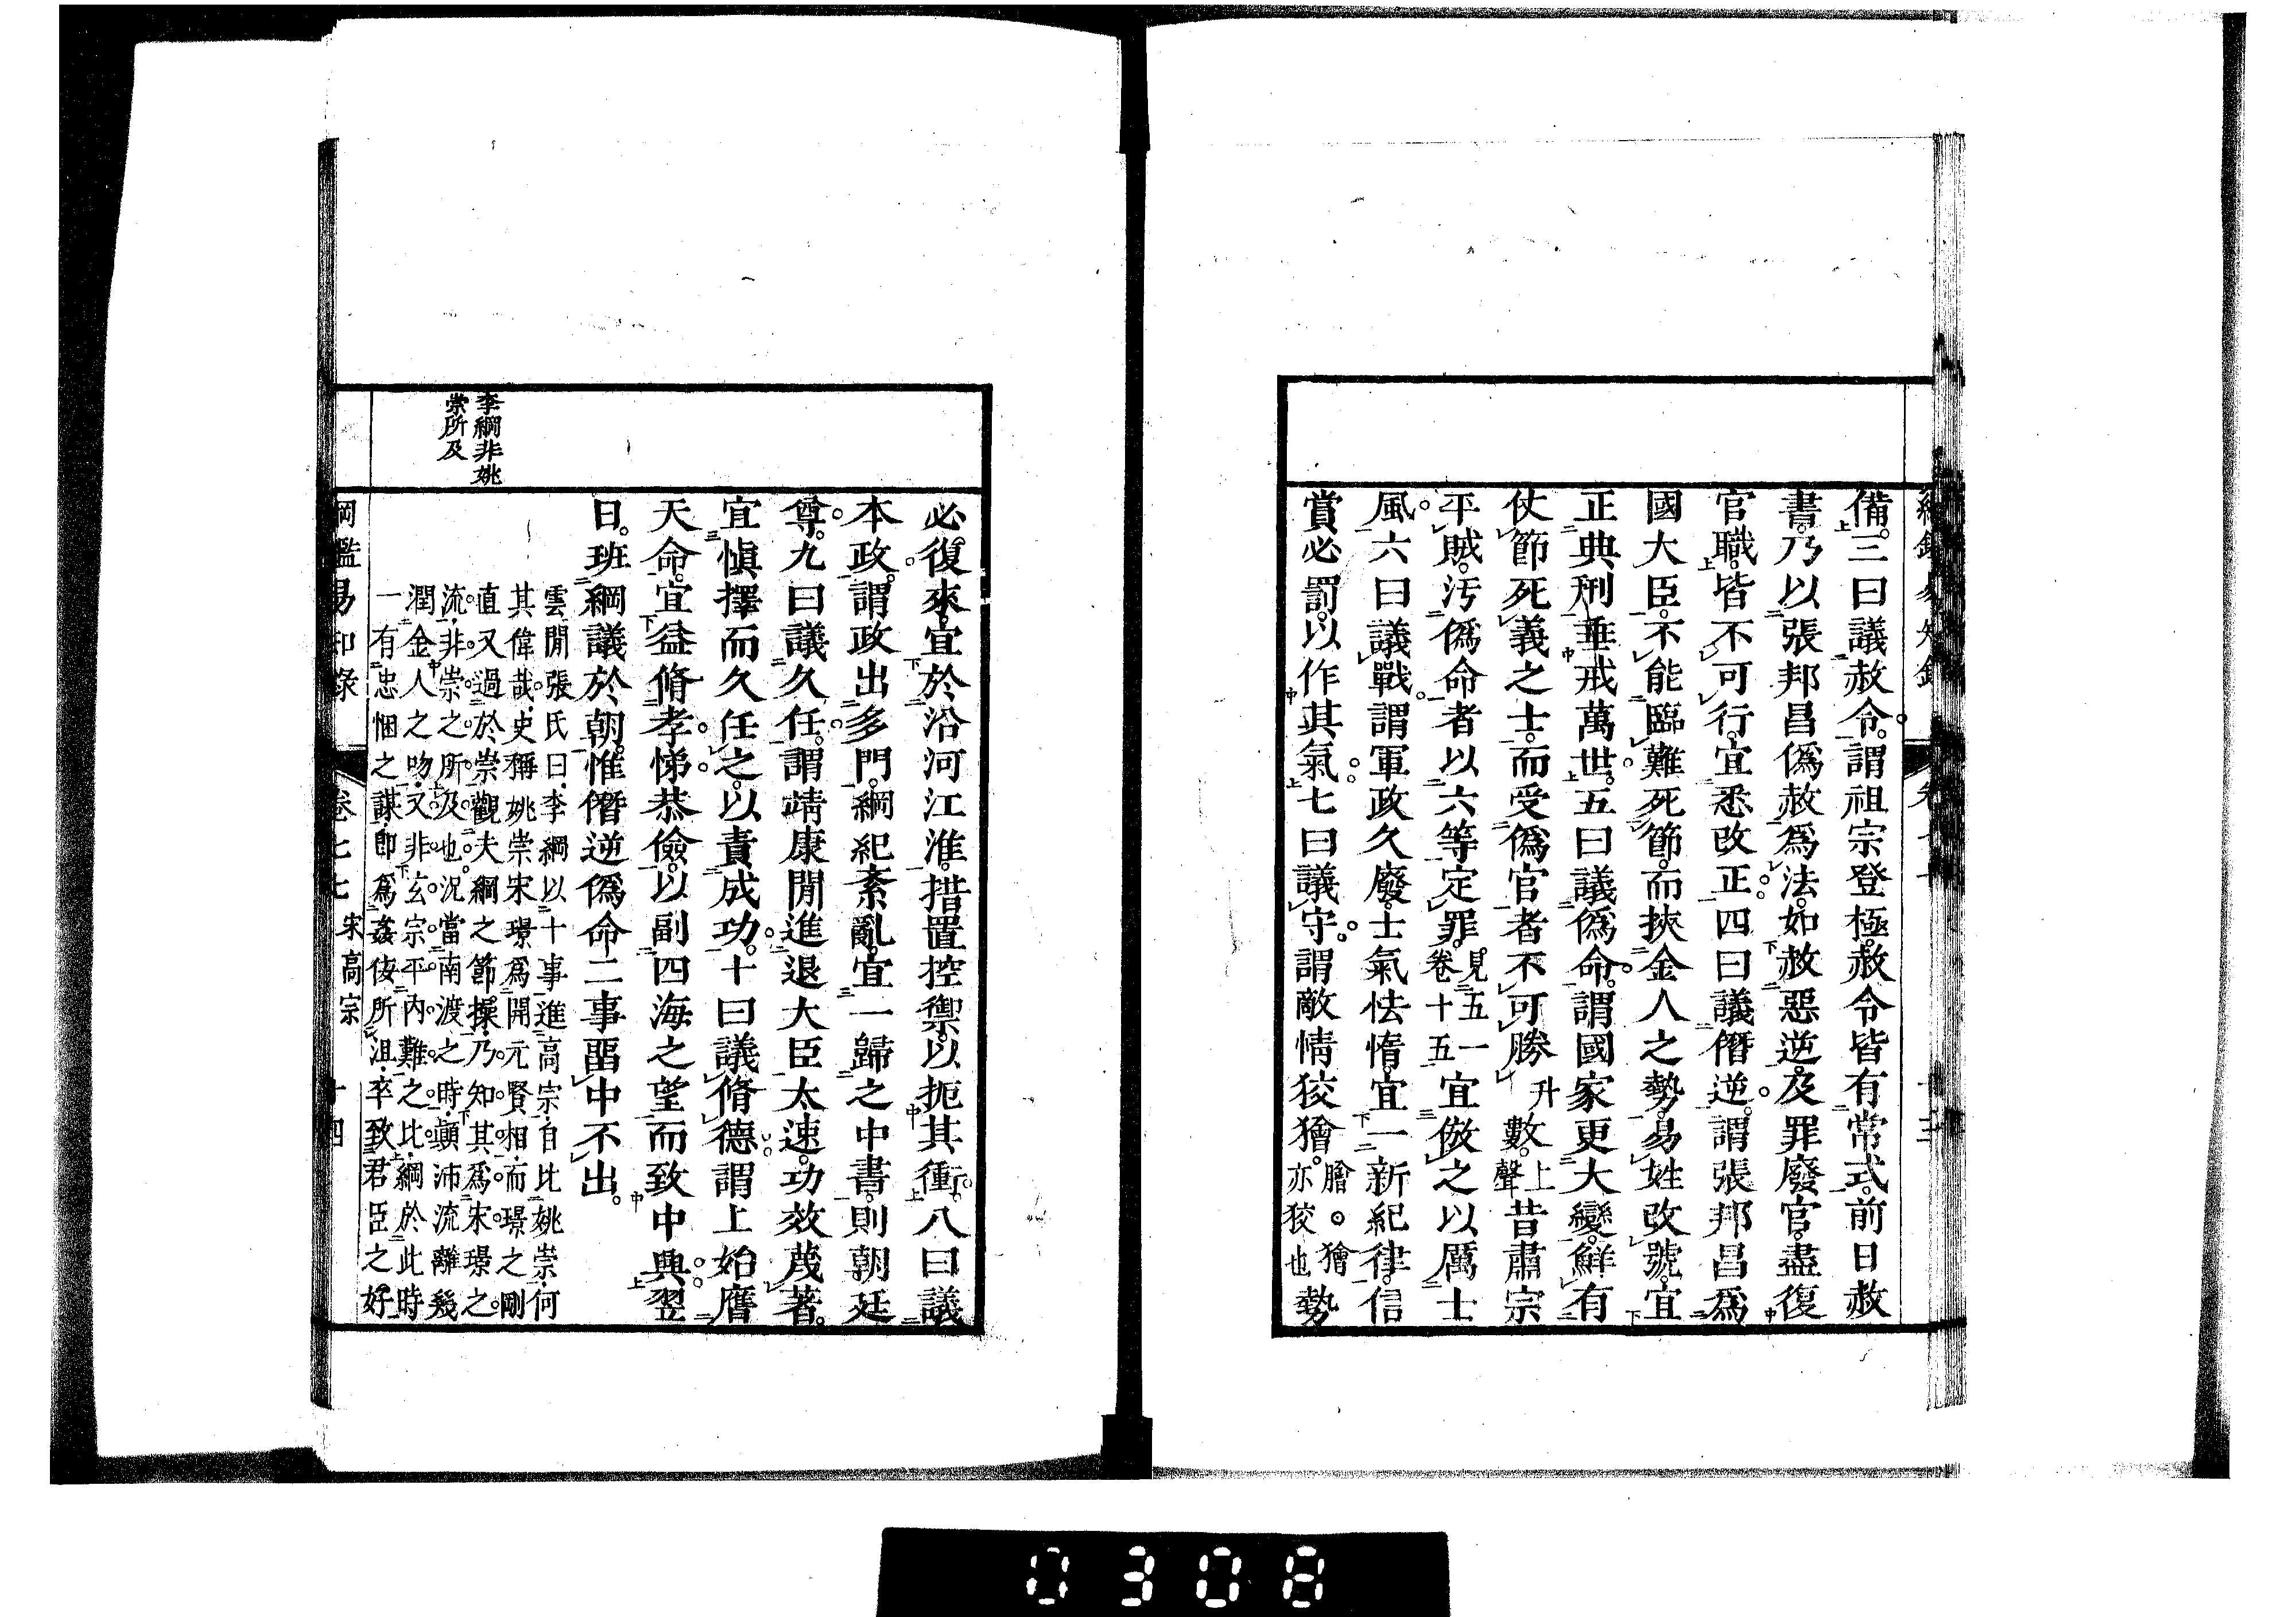 備。三曰議赦令。謂祖宗登極。赦令皆有常式。前日赦
書。乃以張邦昌僞赦爲法。如赦惡逆。及罪廢官。盡復
官職。皆不可行。宜悉改正。四曰議僭逆。謂張邦昌爲
國大臣。不能臨難死節。而挾金人之勢。易姓改號。宜
正典刑。垂戒萬世。五曰議僞命。謂國家更大變。鮮有
仗節死義之士。而受僞官者不可勝升數。上聲昔肅宗
平賊。汚僞命者以六等定罪。見五一卷十五宜倣之以厲士
風。六曰議戰。謂軍政久廢。士氣怯惰。宜一新紀律。信
賞必罰。以作其氣。七曰議守。謂敵情狡獪。膾。獪亦狡也勢
必復來。宜於沿河江淮。措置控禦。以扼其衝。八曰議
本政。謂政出多門。綱紀紊亂。宜一歸之中書。則朝廷
尊。九曰議久任。謂靖康閒進退大臣太速。功效蔑著。
宜愼擇而久任之。以責成功。十曰議脩德。謂上始膺
天命。宜益脩孝悌恭儉。以副四海之望。而致中興。翌
日。班綱議於朝。惟僭逆僞命二事畱中不出。
雲閒張氏曰、李綱以十事進高宗、自比姚崇、何
其偉哉。史稱姚崇宋璟爲開元賢相、而璟之剛
直又過於崇、觀夫綱之節操、乃知其爲宋璟之
流、非崇之所及也。況當南渡之時、顚沛流離、幾
潤金人之吻、又非玄宗平內難之比、綱於此時
一有忠悃之謀、卽爲姦佞所沮、卒致君臣之好
李綱非姚
崇所及
綱鑑易知錄
卷七七
宋高宗
十四